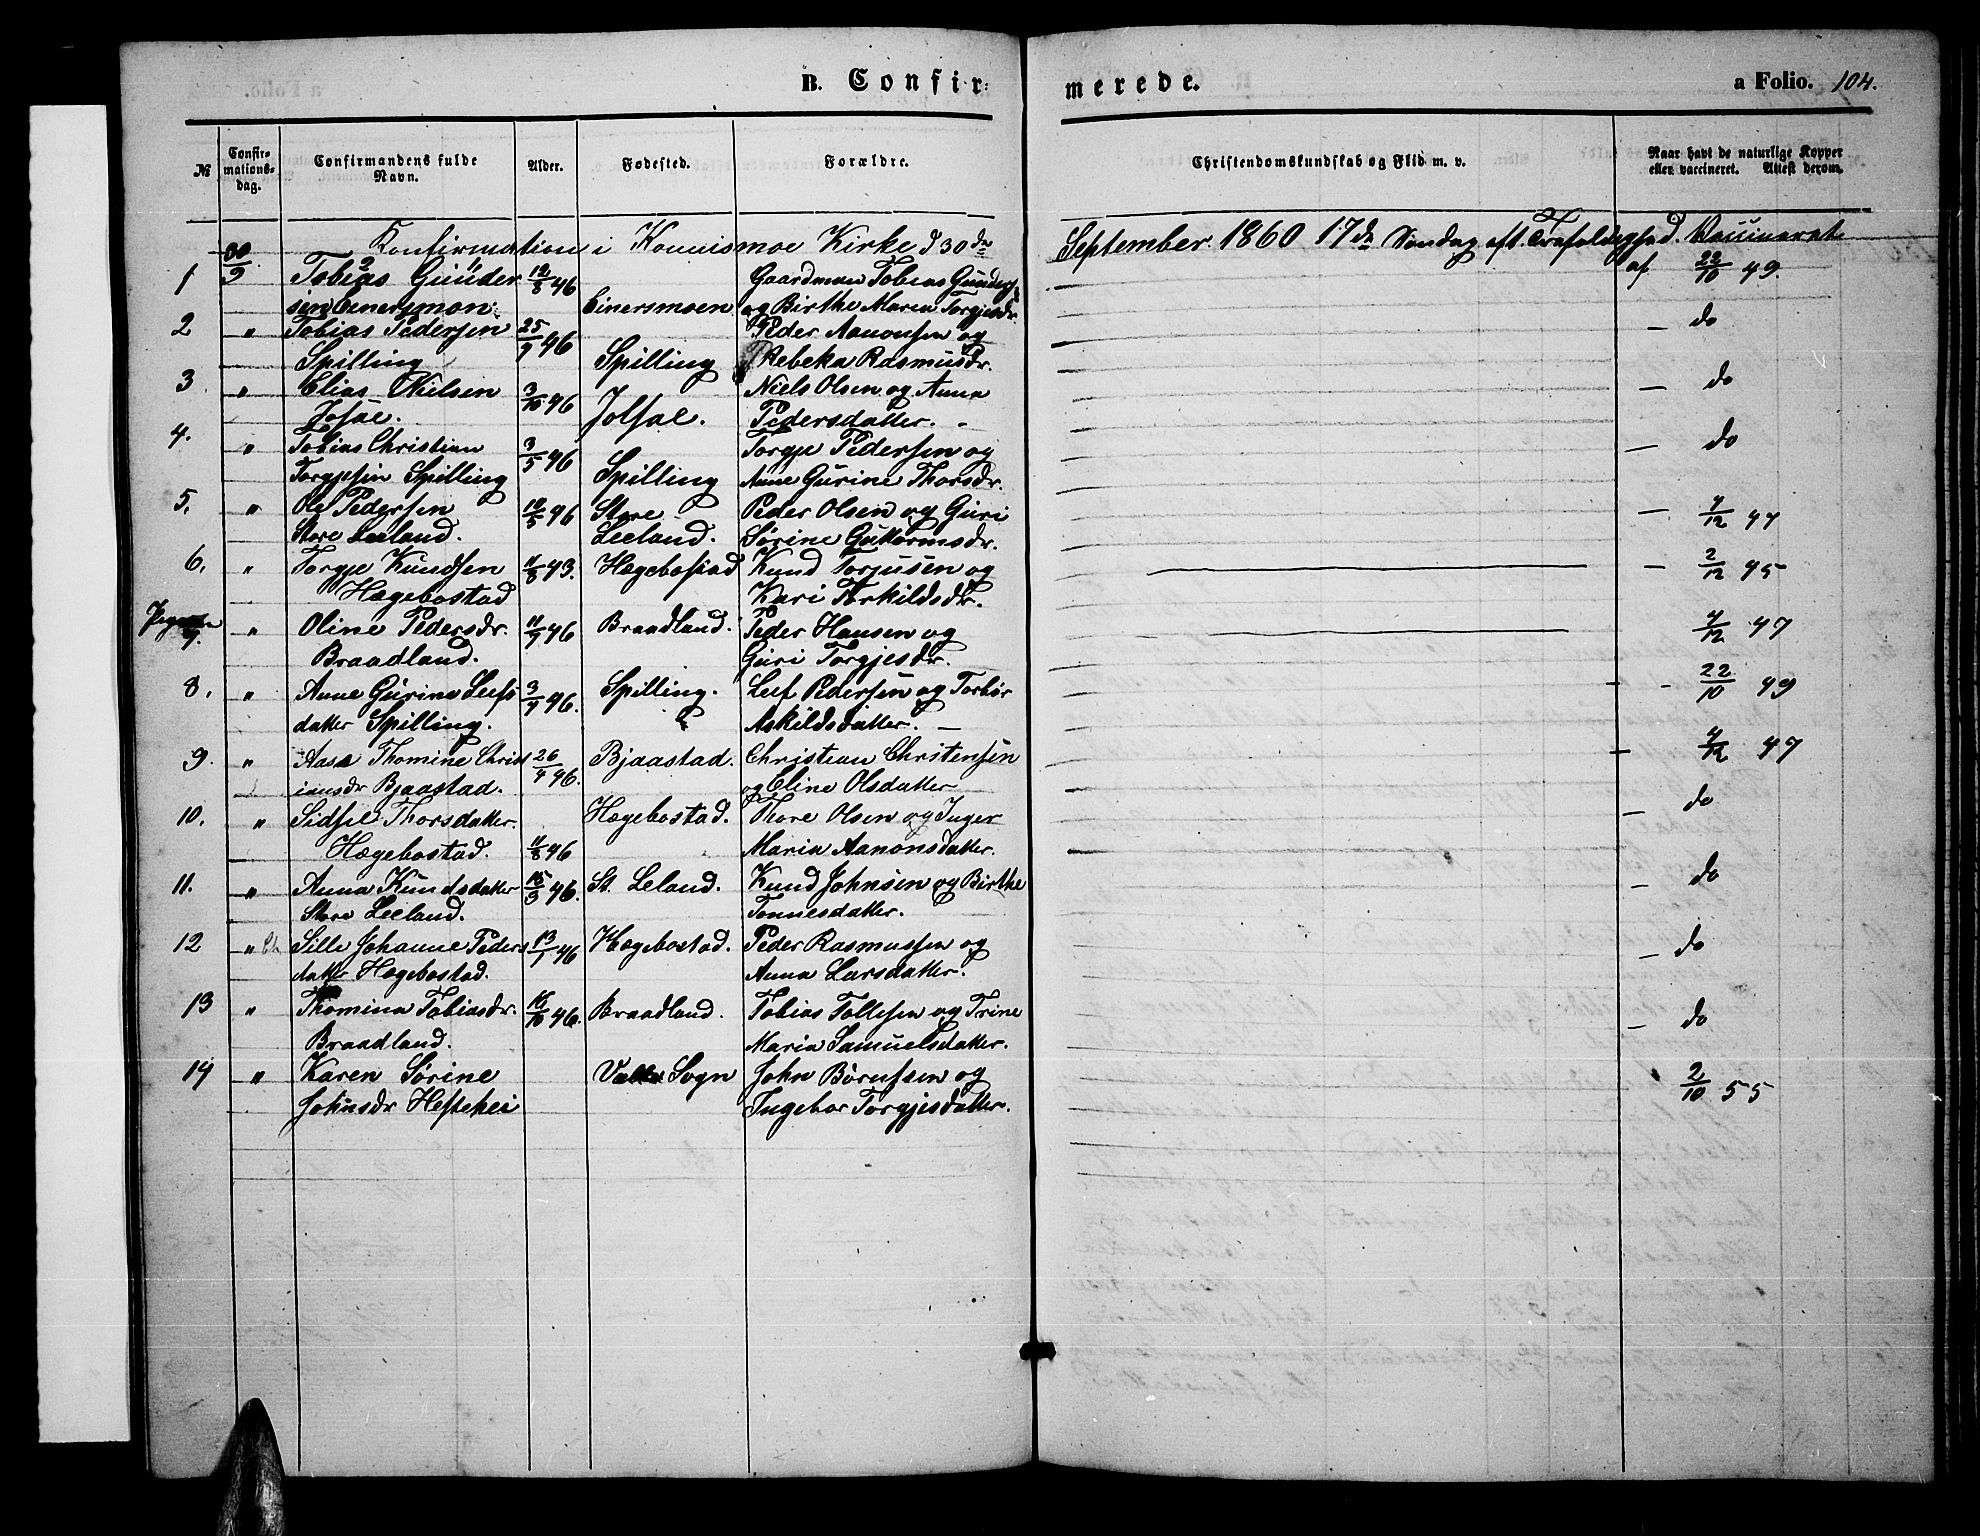 B. Confir=
merede.
a Folio. 104.
№ Confir=mations=dag. Confirmandens fulde Navn. Alder. Fødested. Forældre. Christendomskundskab og Flid m. v. Naar havt de naturlige Kopper eller vaccineret. Attest derom.
Konfirmation i Konnismoe Kirke d 30de September 1860 17de Søndag eft. Trefoldighed. Vaccineret
1 30/9 Tobias Gunder 12/8 46 Gaardman Tobias Gunders af 22/10 49.
sen Einersmon: Einersmoen og Birthe Maria Torgjesdr.
2 " Tobias Pedersen 25/9 46 Peder Aanonsen og — do
Spilling Spilling Rebeka Rasmusdr.
3. " Elias Nielsen 3/10 46 Niels Olsen og Anna — do
Jolsal. Pedersdatter. -
4. " Tobias Christian 3/5 46 Torgje Pedersen og — do
Torgjesen Spilling Spilling Anne Gurine Thorsdr.
5. " Ole Pedersen 12/5 46 Store Peder Olsen og Guri — 7/12 47
Store Leeland. Leeland. Sørine Guttormsdr.
6. " Torgje Kundsen 11/8 43. Hægebostad Kund Torjusen og — 2/12 45
Hægebostad Kari Torkildsdr.
7. " Oline Pedersdr. 11/7 46 Braadland. Peder Hansen og 7/12 47
Braadland. Guri Torgjesdr.
8. " Anne Gurine Leifs 3/7 46. Spilling. Leif Pedersen og Torbør - 22/10 49
datter Spilling. Askildsdatter. —
9. " Aase Thomine Christ 26/4 46. Bjaastad. Christian Christensen - 7/12 47
iansdr Bjaastad. og Eline Olsdatter
10. " Sidsel Thorsdatter. Hægebostad. Thore Olsen og Inger — do
Hægebostad. 11/8 46 Maria Aanonsdatter.
11. " Anna Kundsdatter 15/3 46. St. Leland. Kund Johnsen og Birthe — do
Store Leeland. Tonnesdatter.
12 " Sille Johanne Peders 13/1 46 Hægebostad. Peder Rasmussen og — do
datter Hægebostad. Anna Larsdatter.
13 " Thomina Tobiasdr. 16/10 46. Braadland. Tobias Tollefsen og Trine — do
Braadland. Maria Samuelsdatter.
14 " Karen Sørine Valle Sogn John Børufsen og 2/10 55
Johnsdr Heftehei Ingebor Torgjesdatter.